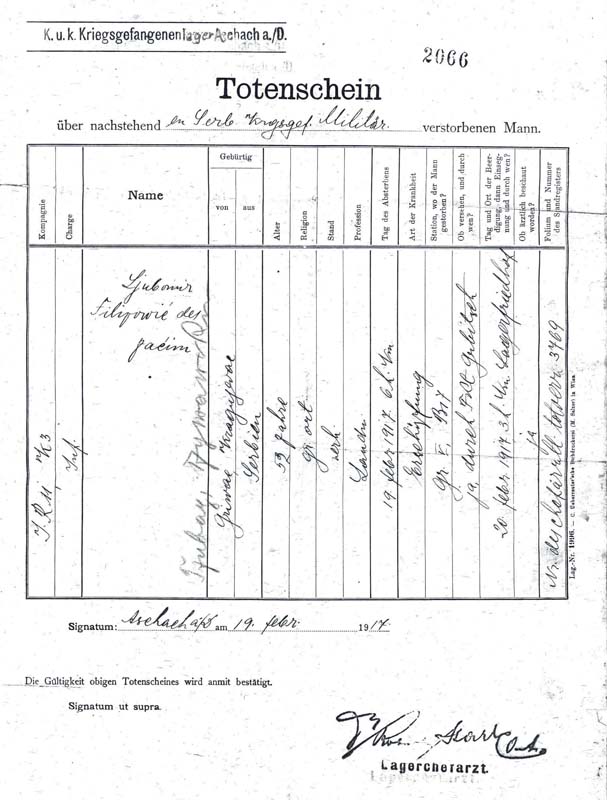 K. u. k. Kriegsgefangenenlager Aschach a./D.
2066
Totenschein
über nachstehend en Serb. Krgsgef. Militär. verstorbenen Mann.
Kompagnie
Charge
Name
Gebürtig
von
aus
Alter
Religion
Stand
Profession
Tag des Absterbens
Art der Krankheit
Station, wo der Mann gestorben?
Ob versehen, und durch wen?
Tag und Ort der Beerdigung, dann Einsegnung und durch wen?
Ob ärztlich beschaut worden?
Folium und Nummer des Standregisters
K3
Inf.
Ljubomir
Filipović des
Pačim
Kragujevac
Serbien
52 Jahre
gr. ort
Landm
19 febr 1917 6h Vm
Erschöpfung
gr. V. B17
ja, durch
20 febr 1917 3h Lagerfriedhof
ja
3769
Lag.-Nr. 1996. —
Signatum: Aschach a/D am 19. febr. 1917.
Die Gültigkeit obigen Totenscheines wird anmit bestätigt.
Signatum ut supra.
Lagerchefarzt.